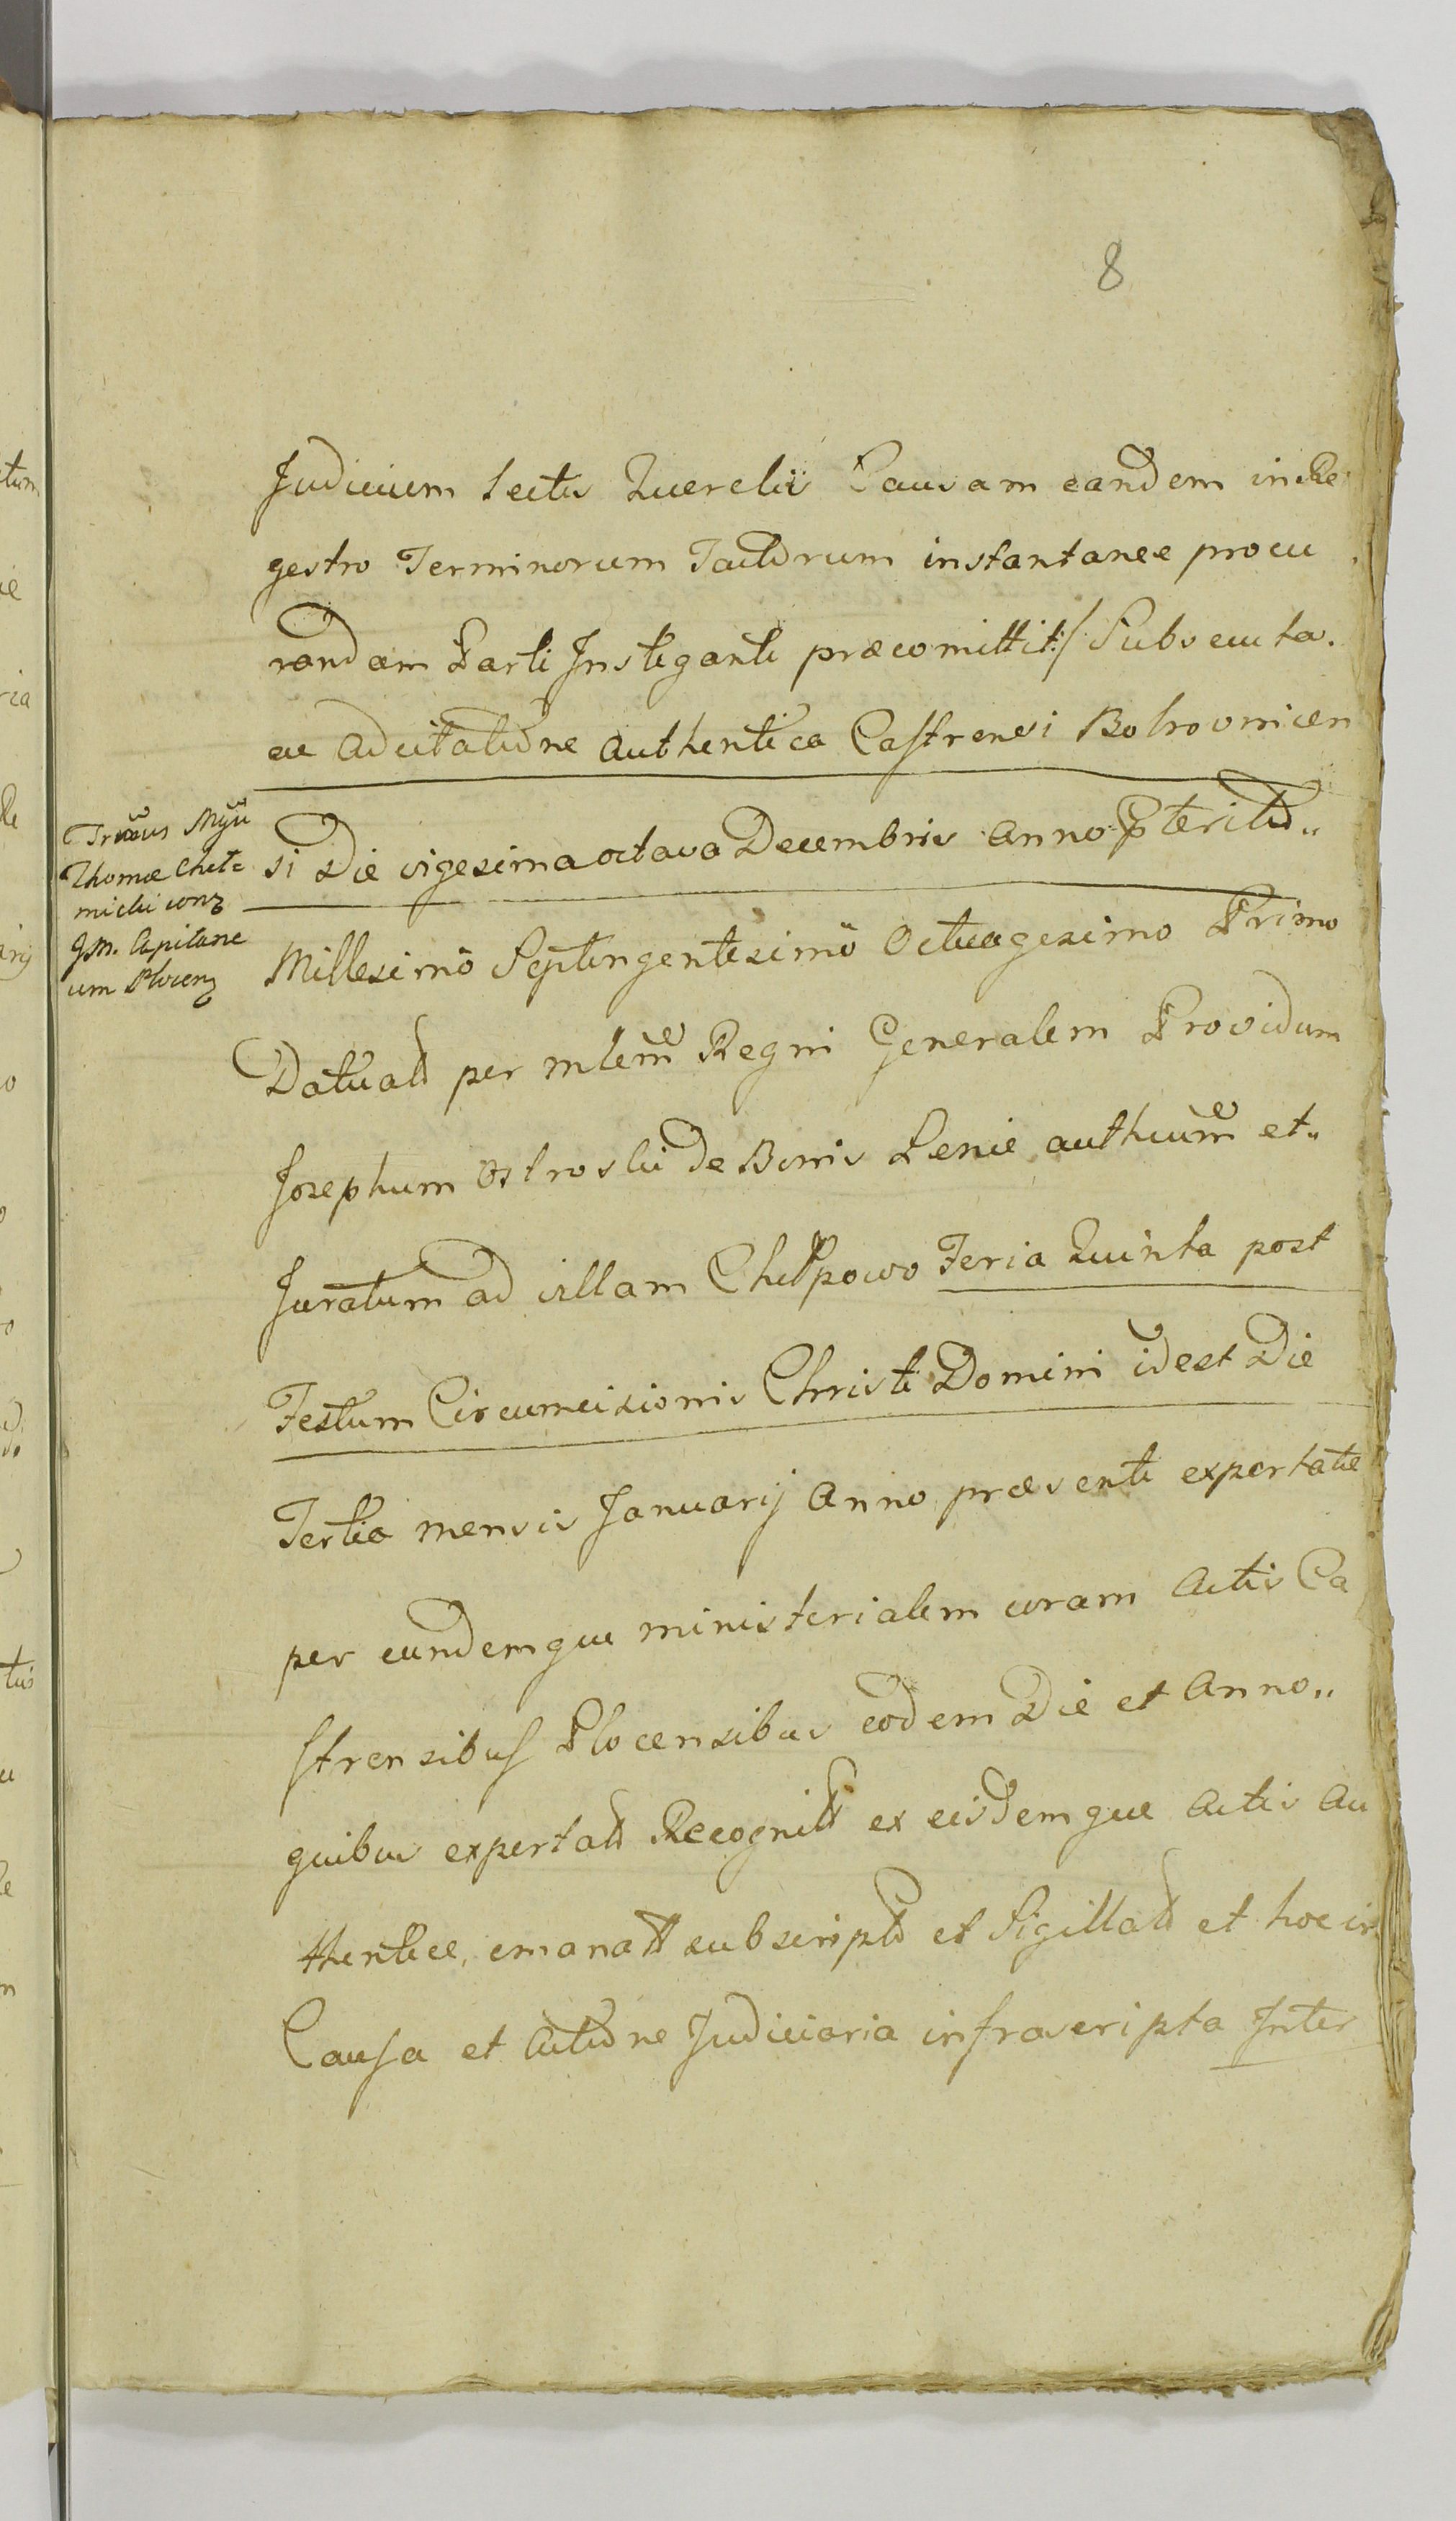 8
Judicium lectis Querelis Causam eandem in Re
gestro Terminorum Tactorum instantanee procu
randam Parti Instiganti præcomittit:/ Subsecuta.
ac Adcitatione Authentica Castrensi Bobrovnicen
si Die vigesima octava Decembris Anno Pterito„
Millesimo Septingentesimo Octuagesimo Primo
per mlem Regni Generalem Providum
Josephum Ostroski de Bonis authcum et„
Juratum ad villam Chelpowo Feria Quinta post
Festum Circumcisionis Christi Domini idest Die
Tertia mensis Januarij Anno præsenti exportata
per eundemque ministerialem coram Actis Ca
strensibus Plocensibus eodem Die et Anno„
quibus exportata Recognita ex eisdemque Actis Au
thentice, emanata subscripta et Sigillata et hoc in
Causa et Actione Judiciaria infrascripta Inter
Thomæ Chel=
micki conz
Capitane
um Plocenz